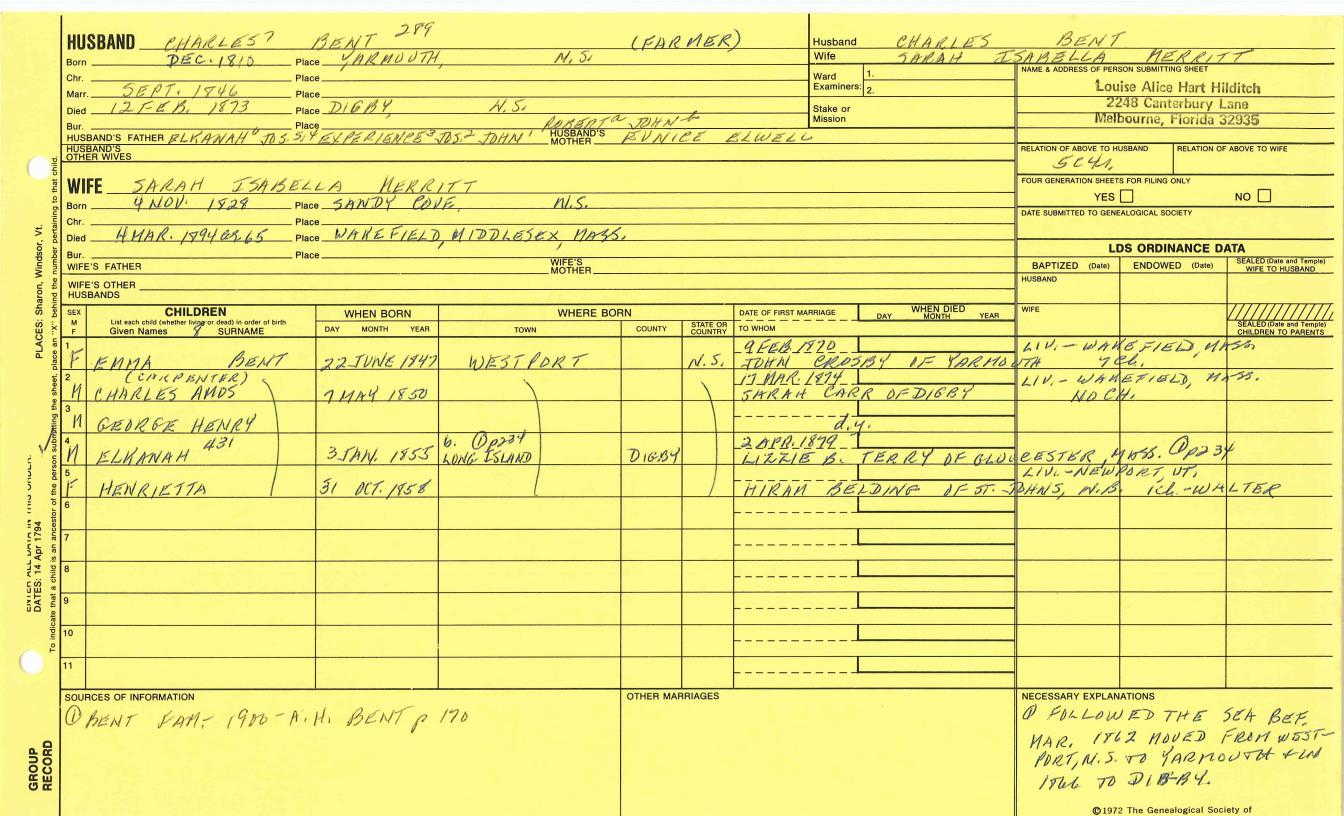 HUSBAND CHARLES7 BENT 289 (FARMER)
Born DEC. 1810 Place YARMOUTH, N.S.
Chr. Place
Marr. SEPT. 1846 Place
Died 12 FEB. 1873 Place DIGBY, N.S.
Bur. Place
ROBERTa JOHNb
HUSBAND'S FATHER ELKANAH6 JOS.5,4 EXPERIENCE3 JOS2 JOHN1 HUSBAND'S MOTHER EUNICE ELWELL
HUSBAND'S OTHER WIVES
Husband CHARLES BENT
Wife SARAH ISABELLA MERRITT
Ward Examiners: 1.
2.
Stake or Mission
NAME & ADDRESS OF PERSON SUBMITTING SHEET
Louise Alice Hart Hilditch
2248 Canterbury Lane
Melbourne, Florida 32935
RELATION OF ABOVE TO HUSBAND RELATION OF ABOVE TO WIFE
5C4R
FOUR GENERATION SHEETS FOR FILING ONLY
YES NO
DATE SUBMITTED TO GENEALOGICAL SOCIETY
WIFE SARAH ISABELLA MERRITT
Born 4 NOV. 1828 Place SANDY COVE, N.S.
Chr. Place
Died 4 MAR. 1894 æ65 Place WAKEFIELD, MIDDLESEX, MASS.
Bur. Place
WIFE'S FATHER WIFE'S MOTHER
WIFE'S OTHER HUSBANDS
LDS ORDINANCE DATA
BAPTIZED (Date) ENDOWED (Date) SEALED (Date and Temple) WIFE TO HUSBAND
HUSBAND
WIFE
SEALED (Date and Temple) CHILDREN TO PARENTS
SEX M F CHILDREN WHEN BORN WHERE BORN DATE OF FIRST MARRIAGE WHEN DIED
List each child (whether living or dead) in order of birth
Given Names 8 SURNAME DAY MONTH YEAR TOWN COUNTY STATE OR COUNTRY TO WHOM DAY MONTH YEAR
1 9 FEB. 1870 LIV.- WAKEFIELD, MASS.
F EMMA BENT 22 JUNE 1847 WESTPORT N.S. JOHN CROSBY OF YARMOUTH 7 Ch.
2 (CARPENTER) 17 MAR. 1874 LIV.- WAKEFIELD, MASS.
M CHARLES AMOS 7 MAY 1850 SARAH CARR OF DIGBY NO CH.
3 M GEORGE HENRY d.y.
4 431 b. ① p234 2 APR. 1879
M ELKANAH 3 JAN. 1855 LONG ISLAND DIGBY LIZZIE B. TERRY OF GLOUCESTER, MASS. ① p234
5 LIV.-NEWPORT, VT.
F HENRIETTA 31 OCT. 1858 HIRAM BELDING OF ST. JOHNS, N.B. 1ch.-WALTER
6
7
8
9
10
11
SOURCES OF INFORMATION
① BENT FAM- 1900-A.H. BENT p 170
OTHER MARRIAGES
NECESSARY EXPLANATIONS
① FOLLOWED THE SEA BEF.
MAR. 1862 MOVED FROM WEST-
PORT, N.S. TO YARMOUTH & IN
1866 TO DIGBY.
©1972 The Genealogical Society of
PLACES: Sharon, Windsor, Vt.
DATES: 14 Apr 1794
To indicate that a child is an ancestor of the person submitting the sheet, place an "X" behind the number pertaining to that child.
GROUP RECORD